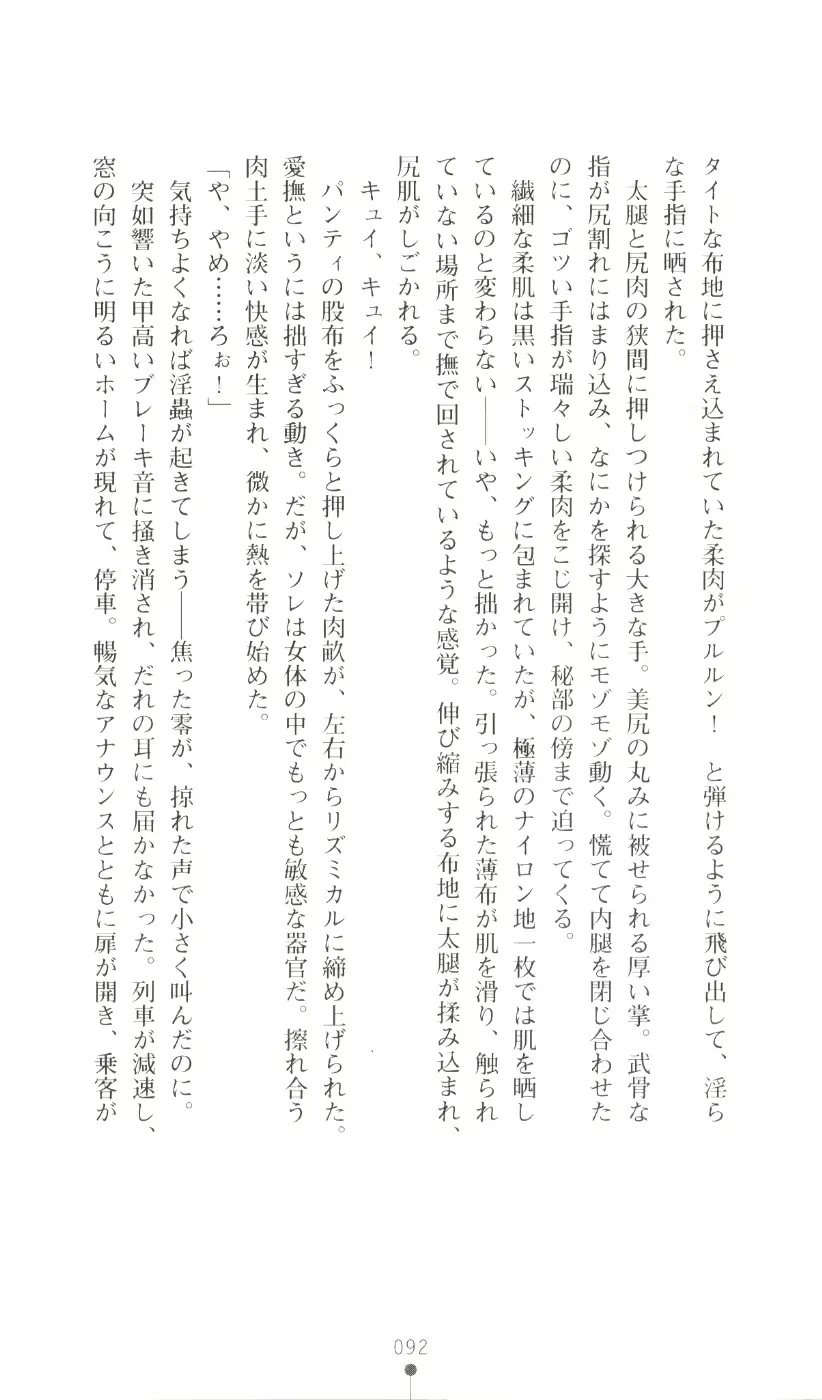 タイトな布地に押さえ込まれていた柔肉がプルルン！　と弾けるように飛び出して、淫ら
な手指に晒された。
　太腿と尻肉の狭間に押しつけられる大きな手。美尻の丸みに被せられる厚い掌。武骨な
指が尻割れにはまり込み、なにかを探すようにモゾモゾ動く。慌てて内腿を閉じ合わせた
のに、ゴツい手指が瑞々しい柔肉をこじ開け、秘部の傍まで迫ってくる。
　繊細な柔肌は黒いストッキングに包まれていたが、極薄のナイロン地一枚では肌を晒し
ているのと変わらない――いや、もっと拙かった。引っ張られた薄布が肌を滑り、触られ
ていない場所まで撫で回されているような感覚。伸び縮みする布地に太腿が揉み込まれ、
尻肌がしごかれる。
　キュイ、キュイ！
　パンティの股布をふっくらと押し上げた肉畝が、左右からリズミカルに締め上げられた。
愛撫というには拙すぎる動き。だが、ソレは女体の中でもっとも敏感な器官だ。擦れ合う
肉土手に淡い快感が生まれ、微かに熱を帯び始めた。
「や、やめ……ろぉ！」
　気持ちよくなれば淫蟲が起きてしまう――焦った零が、掠れた声で小さく叫んだのに。
　突如響いた甲高いブレーキ音に掻き消され、だれの耳にも届かなかった。列車が減速し、
窓の向こうに明るいホームが現れて、停車。暢気なアナウンスとともに扉が開き、乗客が
092